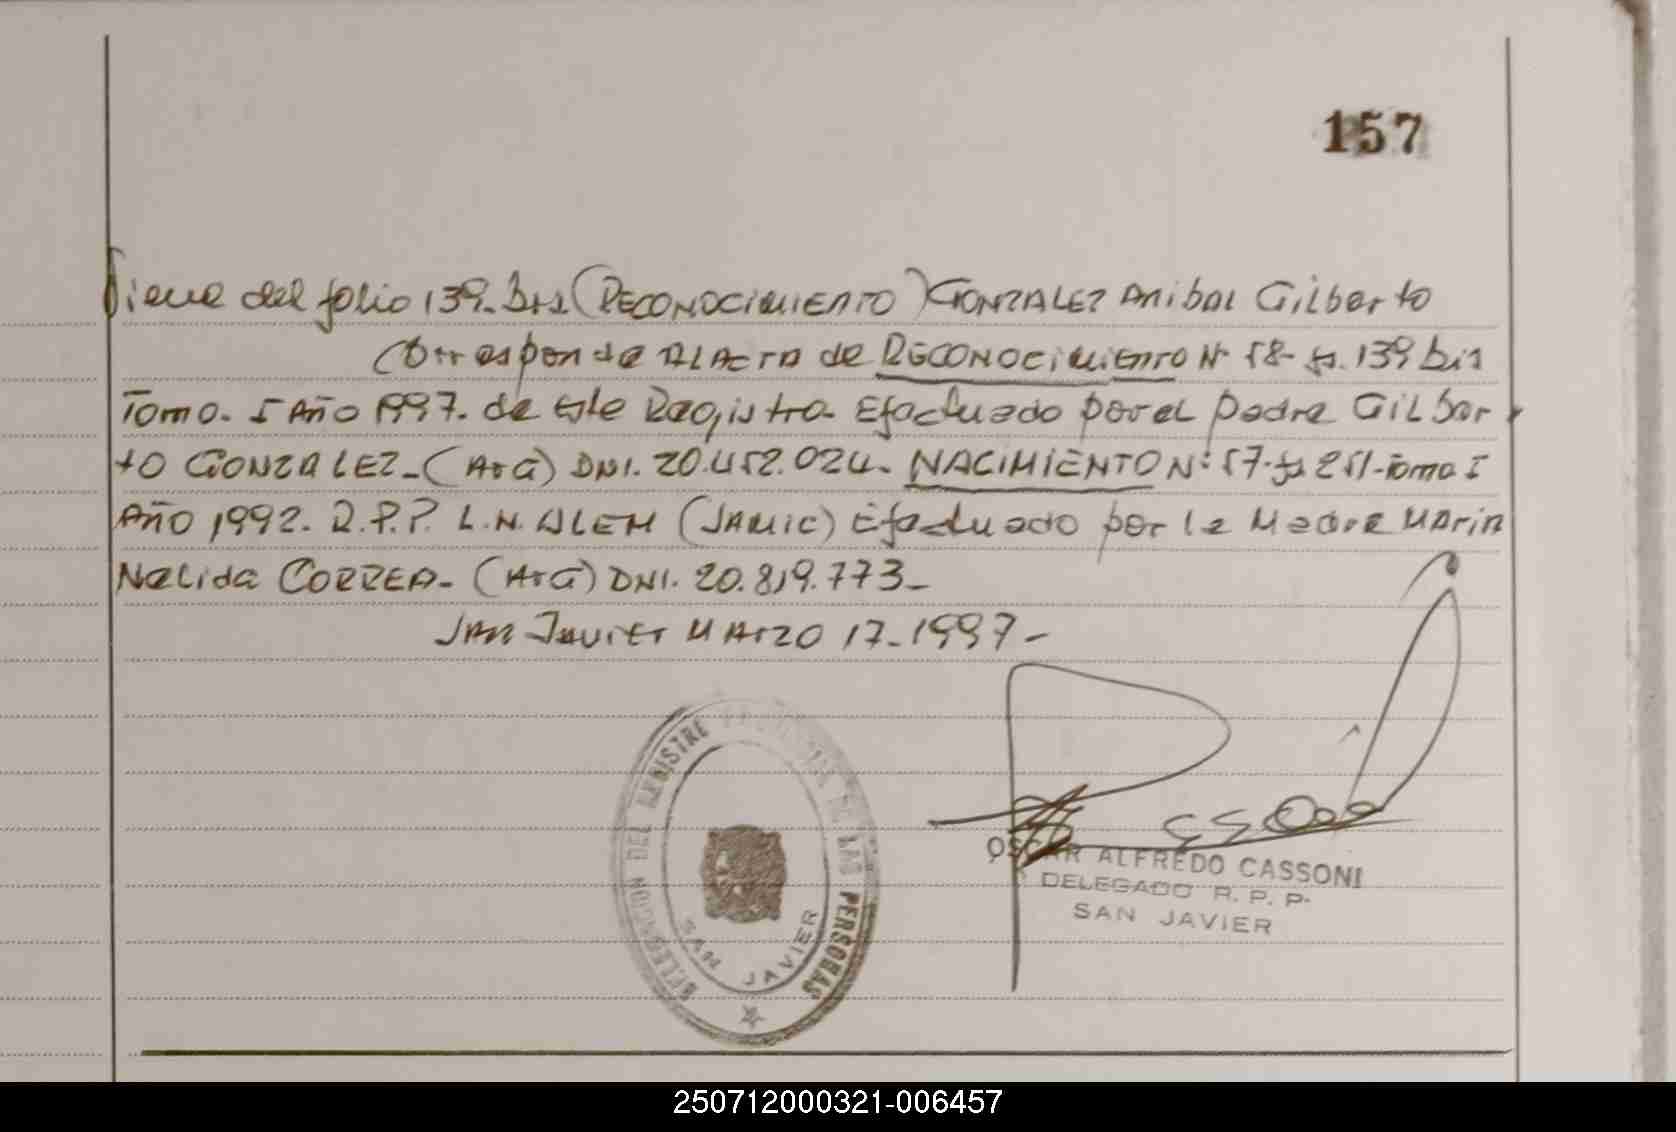 157
Viene del folio 139.Bis (RECONOCIMIENTO) GONZALEZ Anibal Gilberto
Corresponde AL ACTA de RECONOCIMIENTO Nº 58- fs. 139 bis
Tomo. I Año 1997. de este Registro. Efectuado por el padre GILBER
TO GONZALEZ-(ArG) DNI. 20.452.024. NACIMIENTO Nº: 57. fs 251-Tomo I
Año 1992. R.P.P. L.N. ALEM (JAMIC) Efectuado por la Madre MARIA
Nelida CORREA- (ArG) DNI. 20.819.773-
San Javier MArzo 17-1997-
DELEGACION DEL REGISTRO PROVINCIAL DE LAS PERSONAS
SAN JAVIER
OSCAR ALFREDO CASSONI
DELEGADO R. P. P.
SAN JAVIER
250712000321-006457